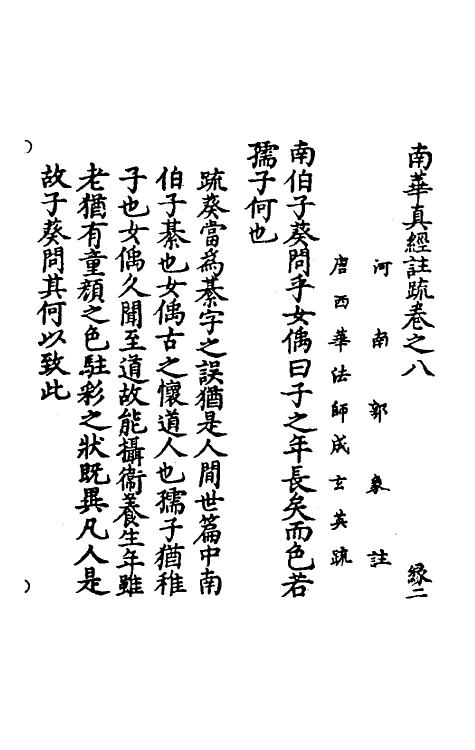 南華真經註疏卷之八　緣二
河南郭象註
唐西華法師成玄英疏
南伯子葵問乎女偊曰子之年長矣而色若
孺子何也
疏葵當為綦字之誤猶是人間世篇中南
伯子綦也女偊古之懷道人也孺子猶稚
子也女偊久聞至道故能攝衛養生年雖
老猶有童顏之色駐彩之狀既異凡人是
故子葵問其何以致此